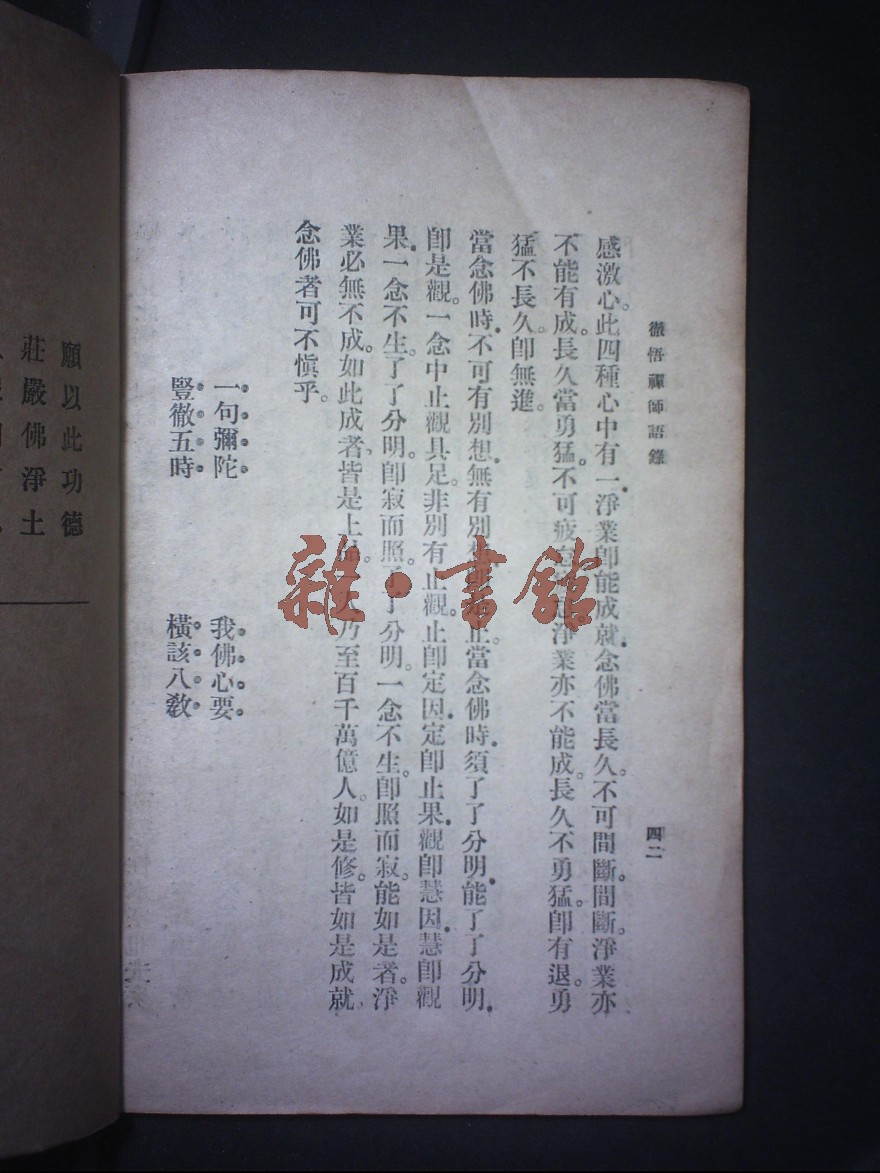 徹悟禪師語錄
四二
感激心。此四種心中有一。淨業卽能成就。念佛當長久。不可間斷。間斷。淨業亦
不能有成。長久當勇猛。不可疲怠。淨業亦不能成。長久不勇猛。卽有退。勇
猛不長久。卽無進。
當念佛時。不可有別想。無有別想。止。當念佛時。須了了分明。能了了分明。
卽是觀。一念中止觀具足。非別有止觀。止卽定因。定卽止果。觀卽慧因。慧卽觀
果。一念不生。了了分明。卽寂而照。了了分明。一念不生。卽照而寂。能如是者。淨
業必無不成。如此成者。皆是上品。乃至百千萬億人。如是修。皆如是成就。
念佛者可不慎乎。
一句彌陀 我佛心要
豎徹五時 橫該八敎
願以此功德
莊嚴佛淨土
雜·書館